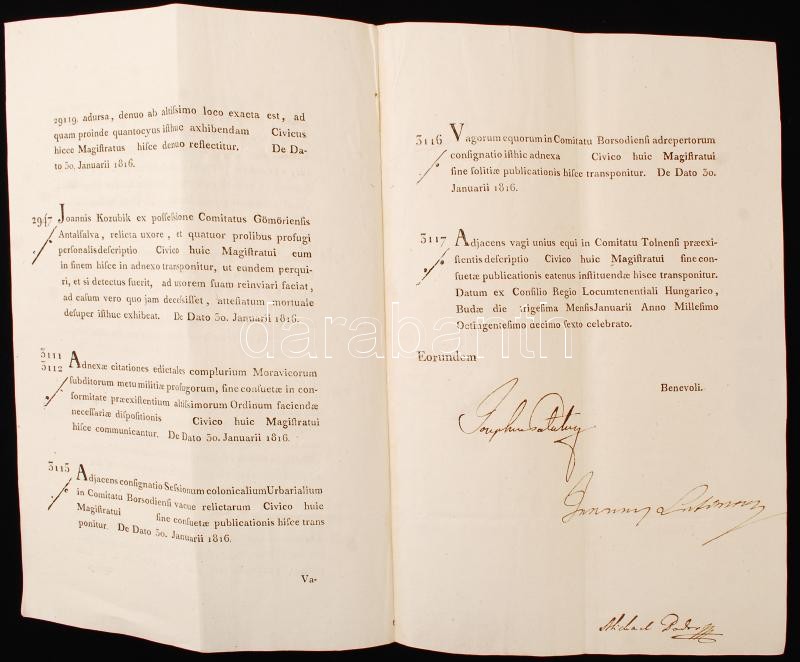 29119. adursa, denuo ab altiſſimo loco exacta est, ad
quam proinde quantocyus iſthuc axhibendam Civicus
hicce Magiſtratus hiſce denuo reflectitur. De Da-
to 30. Januarii 1816.
2947 Joannis Kozubik ex poſſeſſione Comitatus Gömörienſis
Antalfalva, relicta uxore, et quatuor prolibus profugi
perſonalis deſcriptio Civico huic Magiſtratui eum
in finem hiſce in adnexo transponitur, ut eundem perqui-
ri, et ſi detectus fuerit, ad uxorem ſuam reinviari faciat,
ad caſum vero quo jam deceſſiſſet, atteſtatum mortuale
deſuper iſthuc exhibeat. De Dato 30. Januarii 1816.
3111
3112 Adnexæ citationes edictales complurium Moravicorum
ſubditorum metu militiæ profugorum, ſine conſuetæ in con-
formitate præexiſtentium altiſſimorum Ordinum faciendæ
neceſſariæ diſpoſitionis Civico huic Magiſtratui
hiſce communicantur. De Dato 30. Januarii 1816.
3113 Adjacens conſignatio Seſſionum colonicalium Urbarialium
in Comitatu Borsodienſi vacue relictarum Civico huic
Magiſtratui ſine conſuetæ publicationis hiſce trans
ponitur. De Dato 30. Januarii 1816.
Va-
3116 Vagorum equorum in Comitatu Borsodienſi adrepertorum
conſignatio iſthic adnexa Civico huic Magiſtratui
ſine ſolitiæ publicationis hiſce transponitur. De Dato 30.
Januarii 1816.
3117 Adjacens vagi unius equi in Comitatu Tolnenſi præexi-
ſtentis deſcriptio Civico huic Magiſtratui ſine con-
ſuetæ publicationis eatenus inſtituendæ hiſce transponitur.
Datum ex Conſilio Regio Locumtenentiali Hungarico,
Budæ die trigeſima Menſis Januarii Anno Milleſimo
Octingenteſimo decimo ſexto celebrato.
Eorundem
Benevoli.
Josephus Palatinus
Michael
darabanth